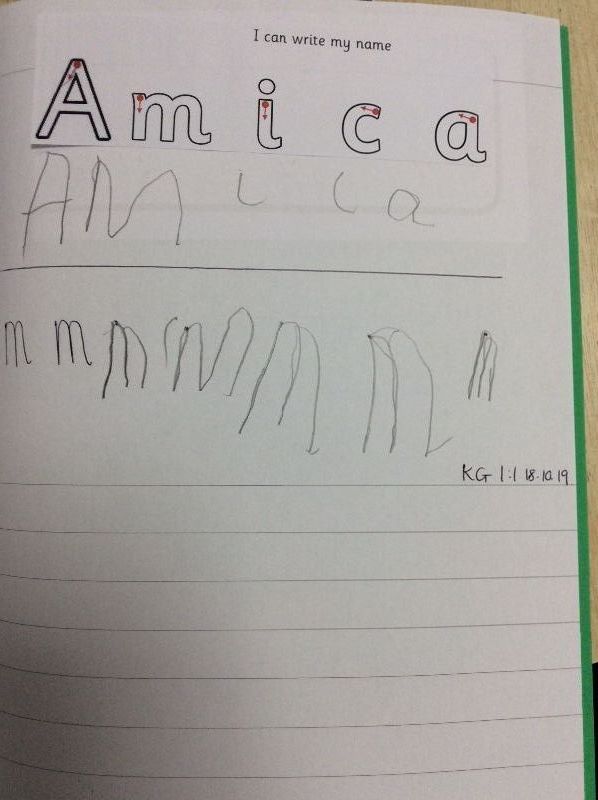 I can write my name
A m i c a
A m i c a
m m m m m m m m
KG 1:1 18.10.19